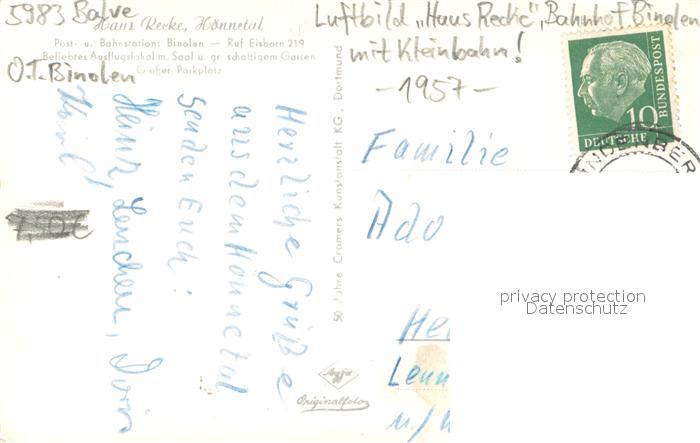 5983 Balve
Haus Recke, Hönnetal
Post- u. Bahnstation: Binolen — Ruf Eisborn 219
Beliebtes Ausflugslokal m. Saal u. gr. schattigem Garten
Großer Parkplatz
O.T. Binolen
Luftbild „Haus Recke", Bahnhof Binolen
mit Kleinbahn!
-1957-
Herzliche Grüße
aus dem Hönnetal
senden Euch!
Heinz, Lenchen, Doris
50 Jahre Cramers Kunstanstalt KG., Dortmund
Agfa
Originalfoto
10
DEUTSCHE
BUNDESPOST
Familie
Ado
He
Lenn
privacy protection
Datenschutz